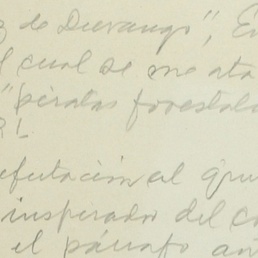 z de Durango", En
l cual se me ata
"piratas forestale
efutación al gru
inspirador del co
el párrafo an